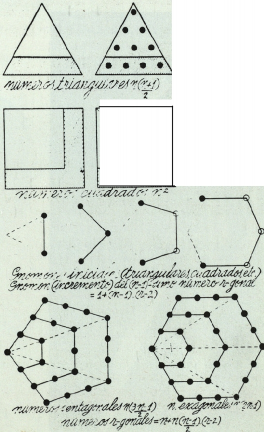 numeros triangulares n(n+1)/2
numeros cuadrados n²
Gnomones iniciales (triangulares, cuadrados, etc.)
Gnomon (incremento) del (n-1)-simo numero r-gonal
= 1+(n-1).(r-2)
numeros pentagonales n(3n-1)/2
n. exagonales n(2n-1)
numeros r-gonales = n+n(n-1)/2 (r-2)